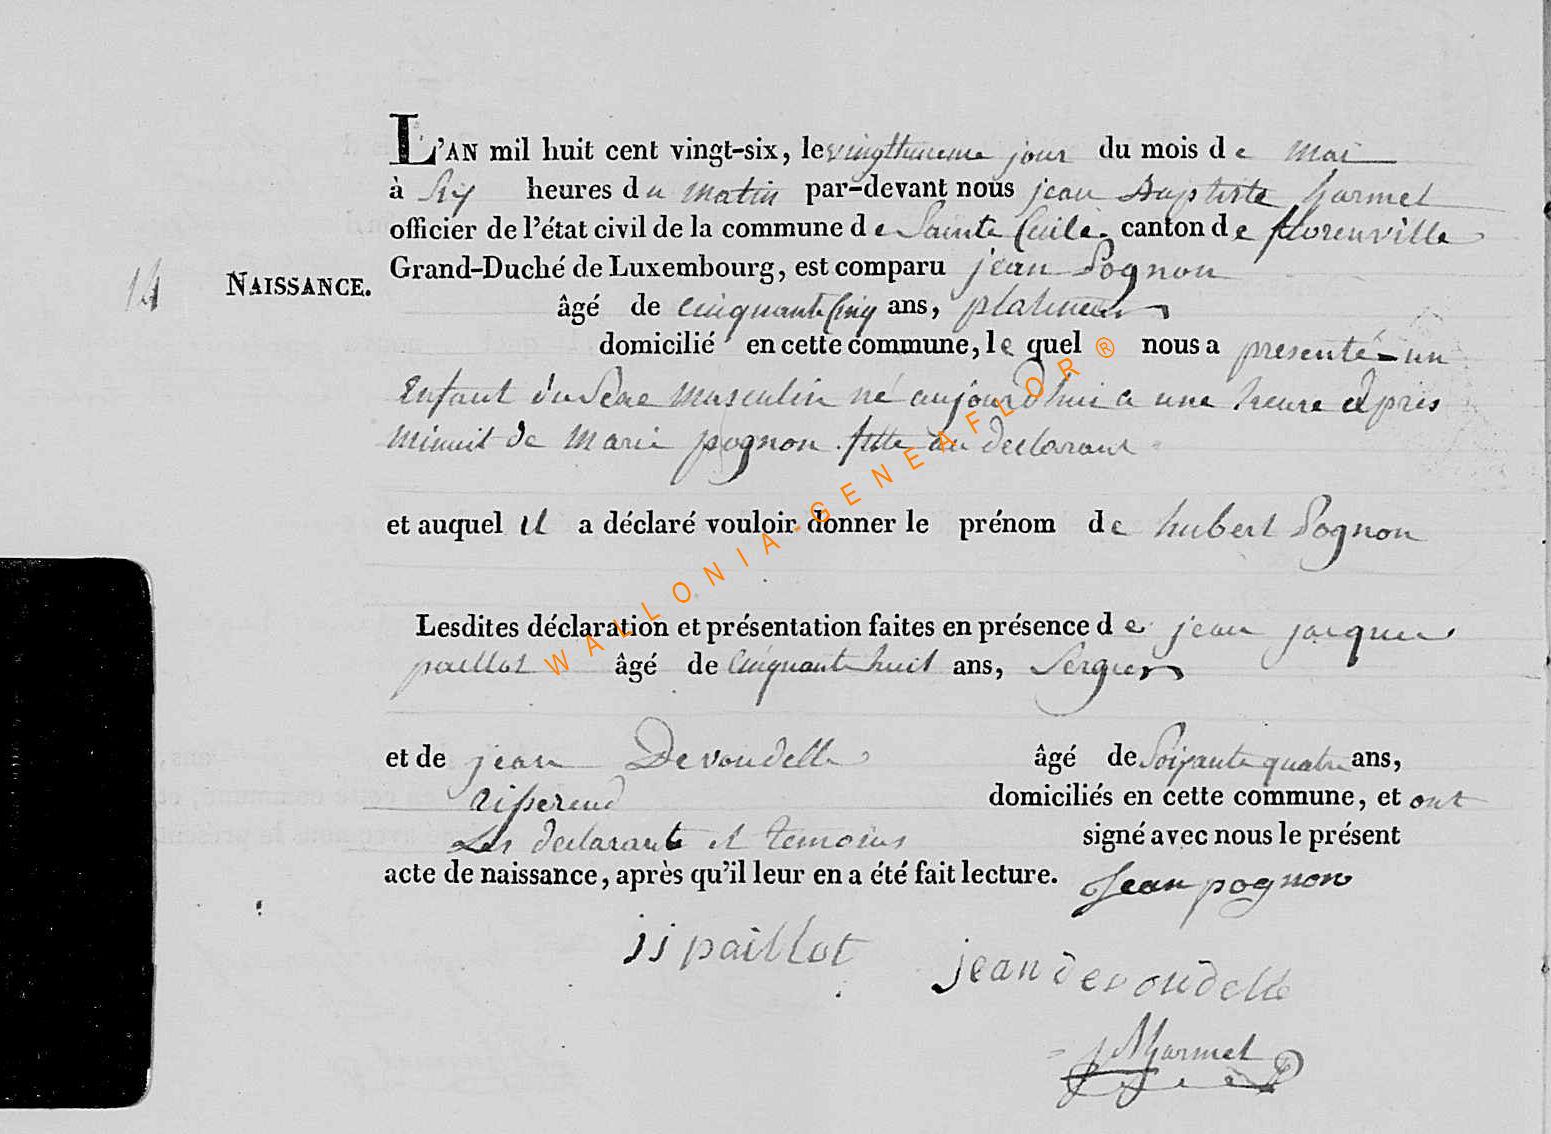 L'AN mil huit cent vingt-six, le vingthuieme jour du mois de Mai
à Six heures du matin par-devant nous jean Baptiste harmel
officier de l'état civil de la commune de Sainte Cecile canton de florenville
14 NAISSANCE. Grand-Duché de Luxembourg, est comparu jean Pognon
âgé de cinquante Cinq ans, platineur
domicilié en cette commune, le quel nous a presenté un
Enfant du Sexe Masculin né aujourd'hui a une heure après
Minuit de Marie pognon fille du declarant
et auquel il a déclaré vouloir donner le prénom de hubert Pognon
Lesdites déclaration et présentation faites en présence de jean jacques
paillot âgé de Cinquante huit ans, Sergier
et de jean Devoudelle âgé de Soixante quatre ans,
tisserand domiciliés en cette commune, et ont
Les declarants et temoins signé avec nous le présent
acte de naissance, après qu'il leur en a été fait lecture. Jean pognon
jj paillot
jean devoudelle
harmel
WALLONIA-GENEAFLOR®